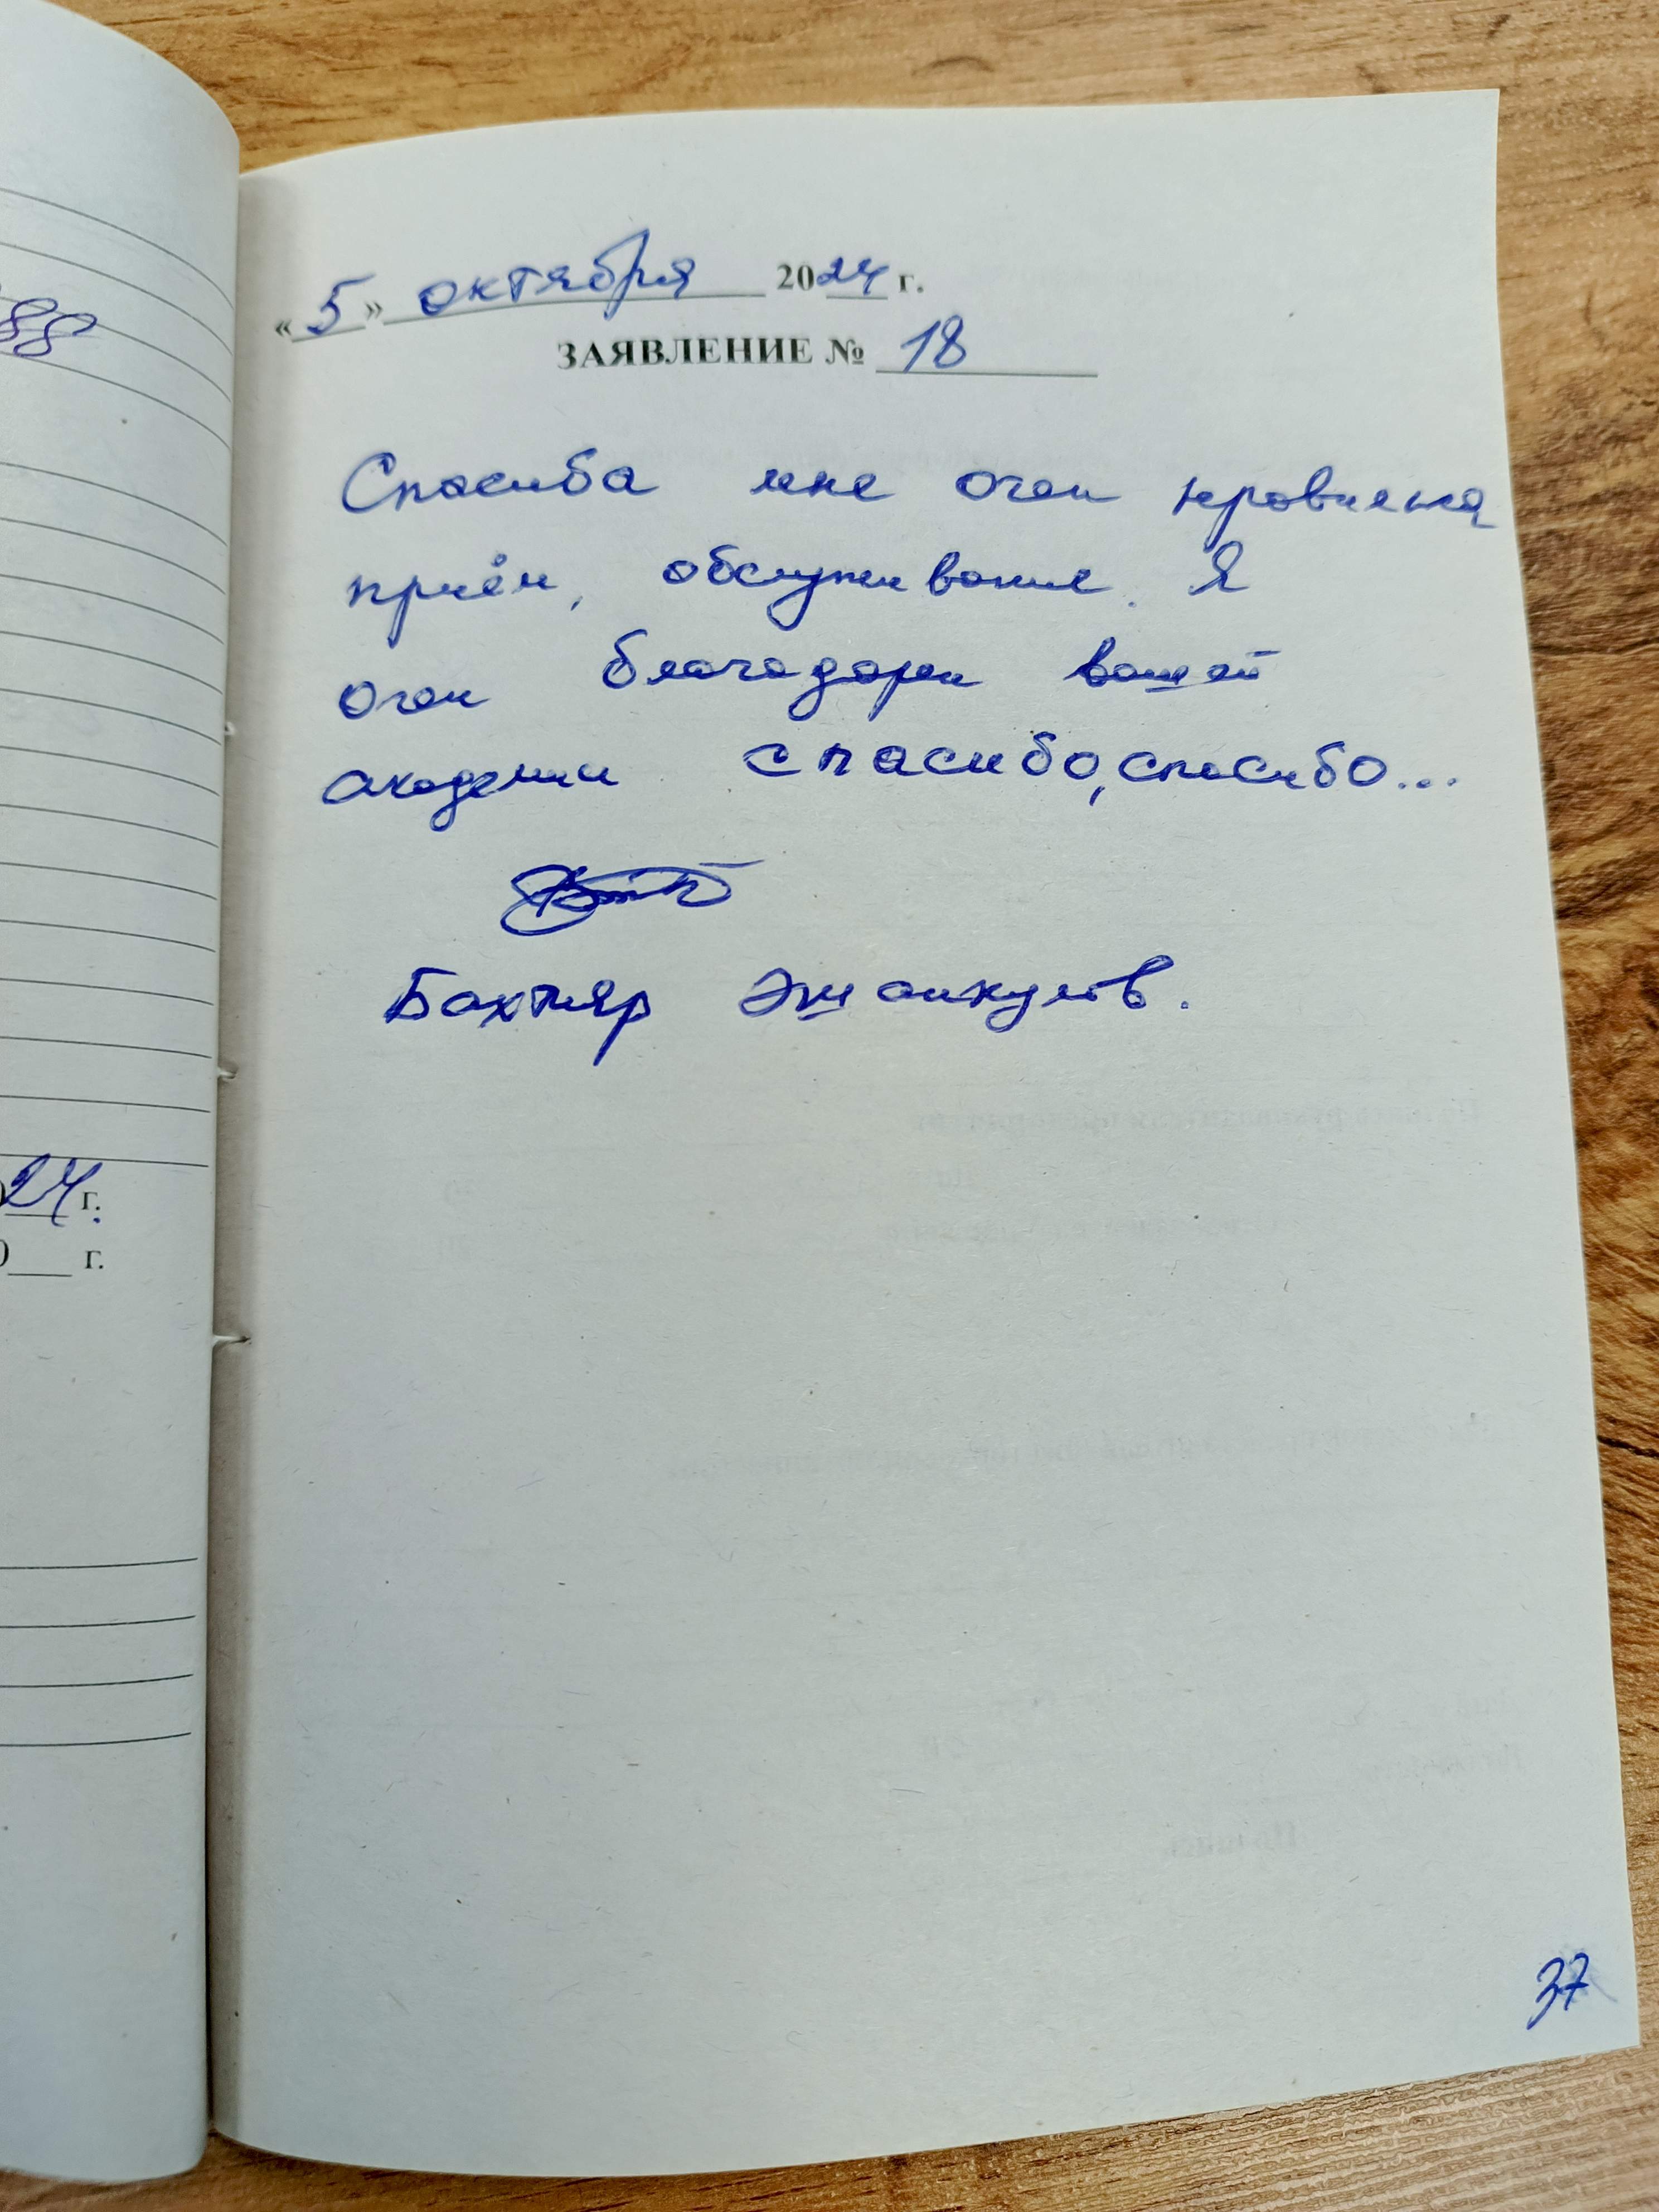 88
24 г.
0___ г.
«5» октября 2024 г.
ЗАЯВЛЕНИЕ № 18
Спасиба мне очен
приём, обслуживание. Я
очен благодарен вашей
академии спасибо, спасибо...
Бахтияр Эшанкулов.
37